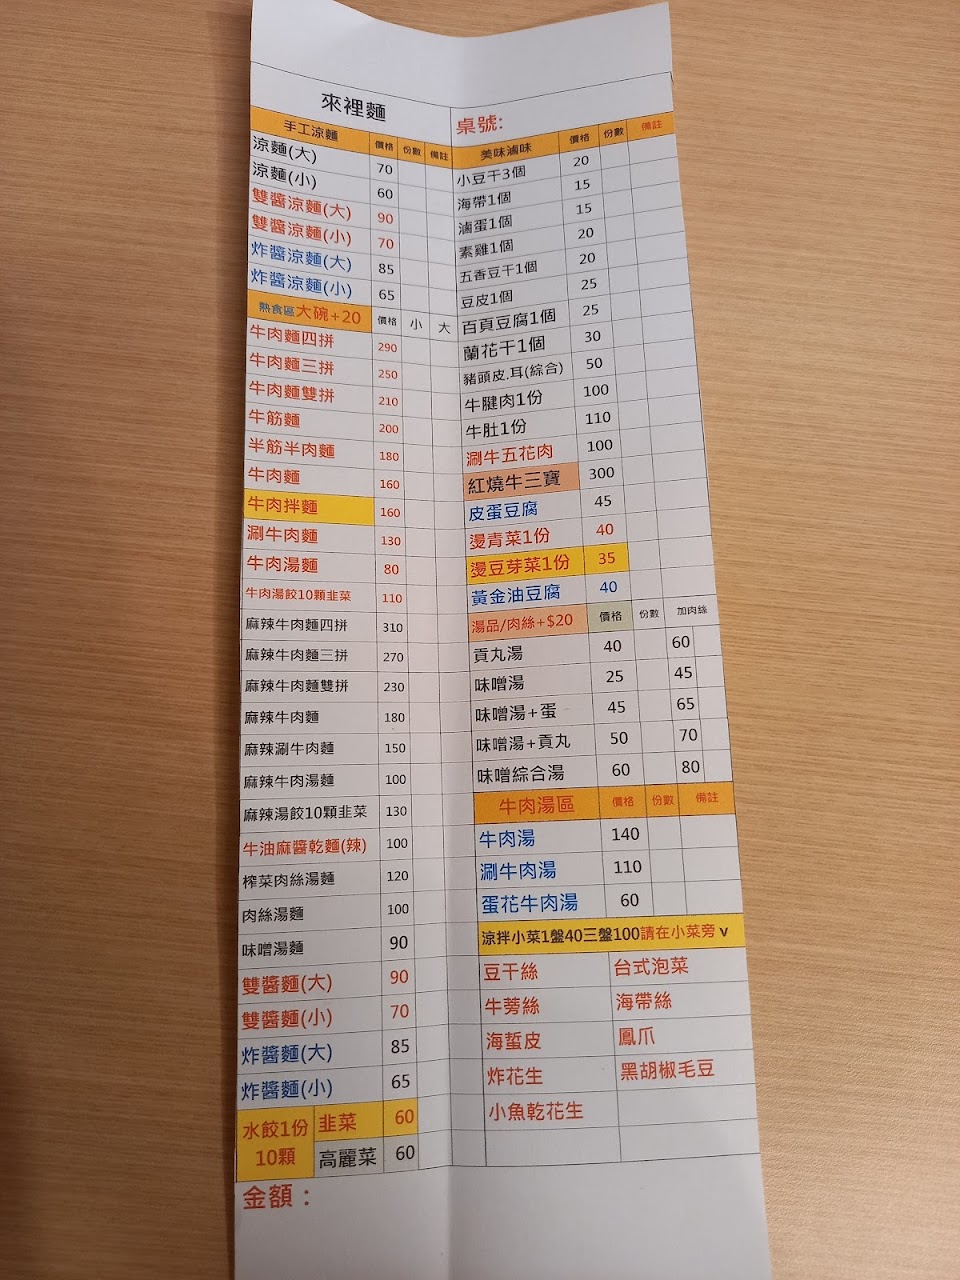 來裡麵
手工涼麵 價格 份數 備註
涼麵(大) 70
涼麵(小) 60
雙醬涼麵(大) 90
雙醬涼麵(小) 70
炸醬涼麵(大) 85
炸醬涼麵(小) 65
熱食區大碗+20 價格 小 大
牛肉麵四拼 290
牛肉麵三拼 250
牛肉麵雙拼 210
牛筋麵 200
半筋半肉麵 180
牛肉麵 160
牛肉拌麵 160
涮牛肉麵 130
牛肉湯麵 80
牛肉湯餃10顆韭菜 110
麻辣牛肉麵四拼 310
麻辣牛肉麵三拼 270
麻辣牛肉麵雙拼 230
麻辣牛肉麵 180
麻辣涮牛肉麵 150
麻辣牛肉湯麵 100
麻辣湯餃10顆韭菜 130
牛油麻醬乾麵(辣) 100
榨菜肉絲湯麵 120
肉絲湯麵 100
味噌湯麵 90
雙醬麵(大) 90
雙醬麵(小) 70
炸醬麵(大) 85
炸醬麵(小) 65
水餃1份 韭菜 60
10顆 高麗菜 60
金額：
桌號:
美味滷味 價格 份數 備註
小豆干3個 20
海帶1個 15
滷蛋1個 15
素雞1個 20
五香豆干1個 20
豆皮1個 25
百頁豆腐1個 25
蘭花干1個 30
豬頭皮.耳(綜合) 50
牛腱肉1份 100
牛肚1份 110
涮牛五花肉 100
紅燒牛三寶 300
皮蛋豆腐 45
燙青菜1份 40
燙豆芽菜1份 35
黃金油豆腐 40
湯品/肉絲+$20 價格 份數 加肉絲
貢丸湯 40 60
味噌湯 25 45
味噌湯+蛋 45 65
味噌湯+貢丸 50 70
味噌綜合湯 60 80
牛肉湯區 價格 份數 備註
牛肉湯 140
涮牛肉湯 110
蛋花牛肉湯 60
涼拌小菜1盤40三盤100請在小菜旁 v
豆干絲 台式泡菜
牛蒡絲 海帶絲
海蜇皮 鳳爪
炸花生 黑胡椒毛豆
小魚乾花生